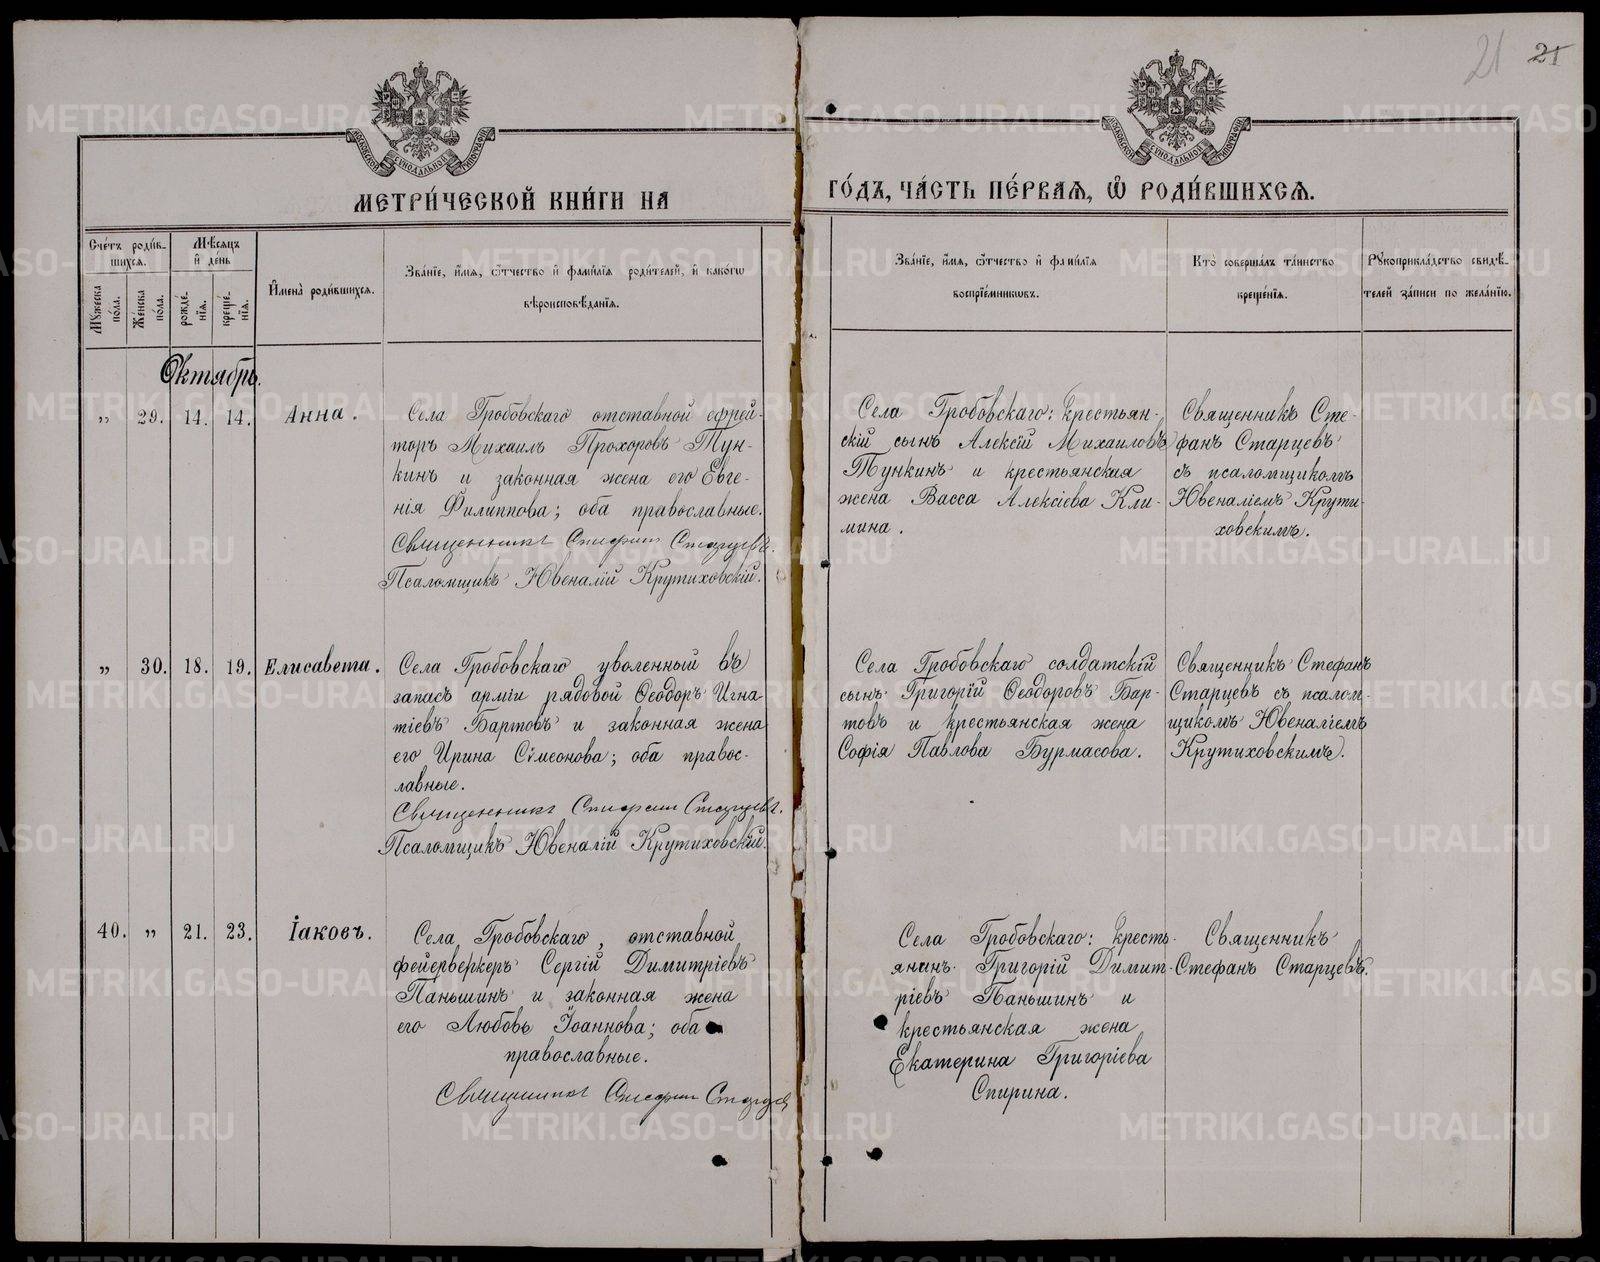 21 21
МОСКОВСКОЙ СУНОДАЛЬНОЙ ТИПОГРАФІИ
МОСКОВСКОЙ СУНОДАЛЬНОЙ ТИПОГРАФІИ
МЕТРИ́ЧЕСКОЙ КНИ́ГИ НА
ГО́ДЪ, ЧА́СТЬ ПЕ́РВАѦ, Ѽ РОДИ́ВШИХСѦ.
Сче́тъ роди́в-
шихсѧ.
Мꙋ́жеска по́ла.
Же́нска по́ла.
Мѣ́сѧцъ
и҆ де́нь
рожде́-
нїѧ.
креще́-
нїѧ.
И҆мена̀ роди́вшихсѧ.
Зва́нїе, и҆́мѧ, ѻ҆́тчество и҆ фами́лїѧ роди́телей, и҆ како́гѡ
вѣроисповѣ́данїѧ.
Зва́нїе, и҆́мѧ, ѻ҆́тчество и҆ фами́лїѧ
воспрїе́мникѡвъ.
Кто̀ соверша́лъ та́инство
креще́нїѧ.
Рꙋкоприкла́дство свидѣ́-
телей за́писи по жела́нїю.
Октябрь.
„ 29. 14. 14. Анна.
Села Гробовскаго отставной ефрей-
торъ Михаилъ Прохоровъ Тун-
кинъ и законная жена его Евге-
нія Филиппова; оба православные.
Священникъ Стефанъ Старцевъ.
Псаломщикъ Ювеналій Крутиховскій.
Села Гробовскаго: крестьян-
скій сынъ Алексій Михаиловъ
Тункинъ и крестьянская
жена Васса Алексіева Кли-
мина.
Священникъ Сте-
фанъ Старцевъ
съ псаломщикомъ
Ювеналіемъ Крути-
ховскимъ.
„ 30. 18. 19. Елисавета.
Села Гробовскаго уволенный въ
запасъ арміи рядовой Ѳеодоръ Игна-
тіевъ Бартовъ и законная жена
его Ирина Сѵмеонова; оба правос-
лавные.
Священникъ Стефанъ Старцевъ.
Псаломщикъ Ювеналій Крутиховскій.
Села Гробовскаго солдатскій
сынъ Григорій Ѳеодоровъ Бар-
товъ и крестьянская жена
Софія Павлова Бурмасова.
Священникъ Стефанъ
Старцевъ съ псалом-
щикомъ Ювеналіемъ
Крутиховскимъ.
40. „ 21. 23. Іаковъ.
Села Гробовскаго, отставной
фейерверкеръ Сергій Димитріевъ
Паньшинъ и законная жена
его Любовь Іоаннова; оба
православные.
Священникъ Стефанъ Старцев
Села Гробовскаго: кресть-
янинъ Григорій Димит-
ріевъ Паньшинъ и
крестьянская жена
Екатерина Григоріева
Спирина.
Священникъ
Стефанъ Старцевъ.
METRIKI.GASO-URAL.RU